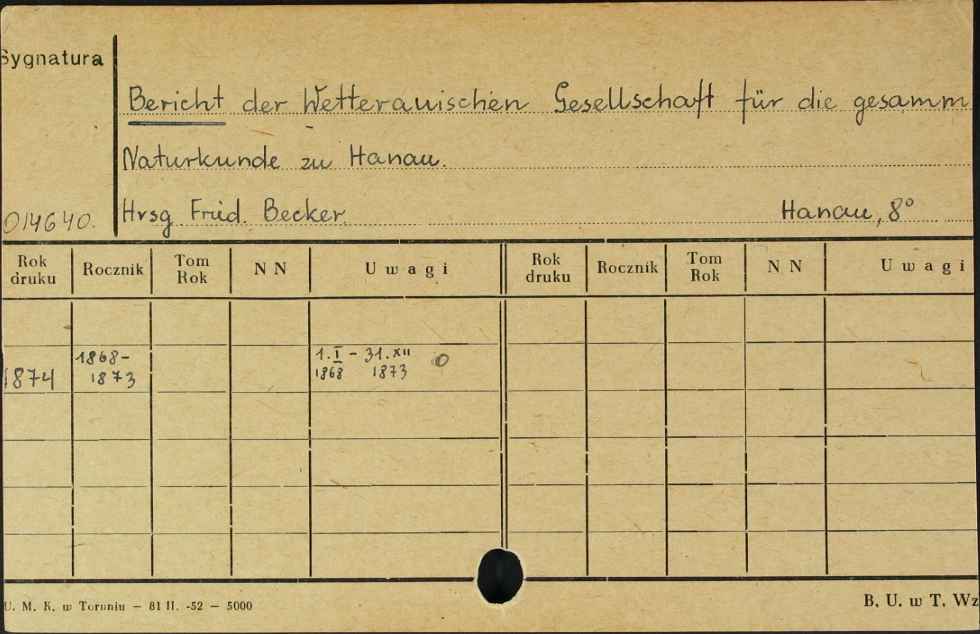 Sygnatura
Bericht der Wetterauischen Gesellschaft für die gesamm
Naturkunde zu Hanau.
014640. Hrsg. Fried. Becker Hanau, 8°
Rok druku Rocznik Tom Rok N N Uwagi Rok druku Rocznik Tom Rok N N Uwagi
1868- 1.I - 31.XII
1874 1873 1868 1873
U. M. K. w Toruniu — 81 II. -52 — 5000 B. U. w T. Wz